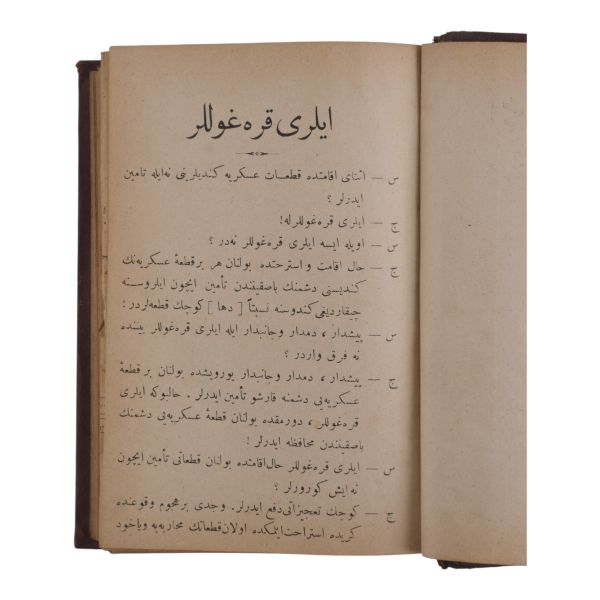 ايلرى قره غوللر
س — اثناى اقامتده قطعات عسكريه كنديلرينى نه‌ايله تأمين
ايدرلر ؟
ج — ايلرى قره غوللرله!
س — اويله ايسه ايلرى قره غوللر نه‌در ؟
ج — حال اقامت و استراحتده بولنان هر بر قطعهٔ عسكريه‌نك
كنديسنى دشمنك باصقيندن تأمين ايچون ايلروسنه
چيقارديغى كندوسنه نسبتاً [ دها ] كوچك قطعه‌لردر ؛
س — پيشدار ، دمدار و جانبدار ايله ايلرى قره غوللر بيننده
نه فرق واردر ؟
ج — پيشدار ، دمدار و جانبدار يورويشده بولنان بر قطعهٔ
عسكريه‌يى دشمنه قارشو تأمين ايدرلر . حالبوكه ايلرى
قره غوللر ، دورمقده بولنان قطعهٔ عسكريه‌يى دشمنك
باصقيندن محافظه ايدرلر !
س — ايلرى قره غوللر حال اقامتده بولنان قطعاتى تأمين ايچون
نه ايش كورورلر ؟
ج — كوچك تعجيزاتى دفع ايدرلر. وجدى بر هجوم وقوعنده
كريده استراحت ايلمكده اولان قطعاتك محاربه‌يه وياخود